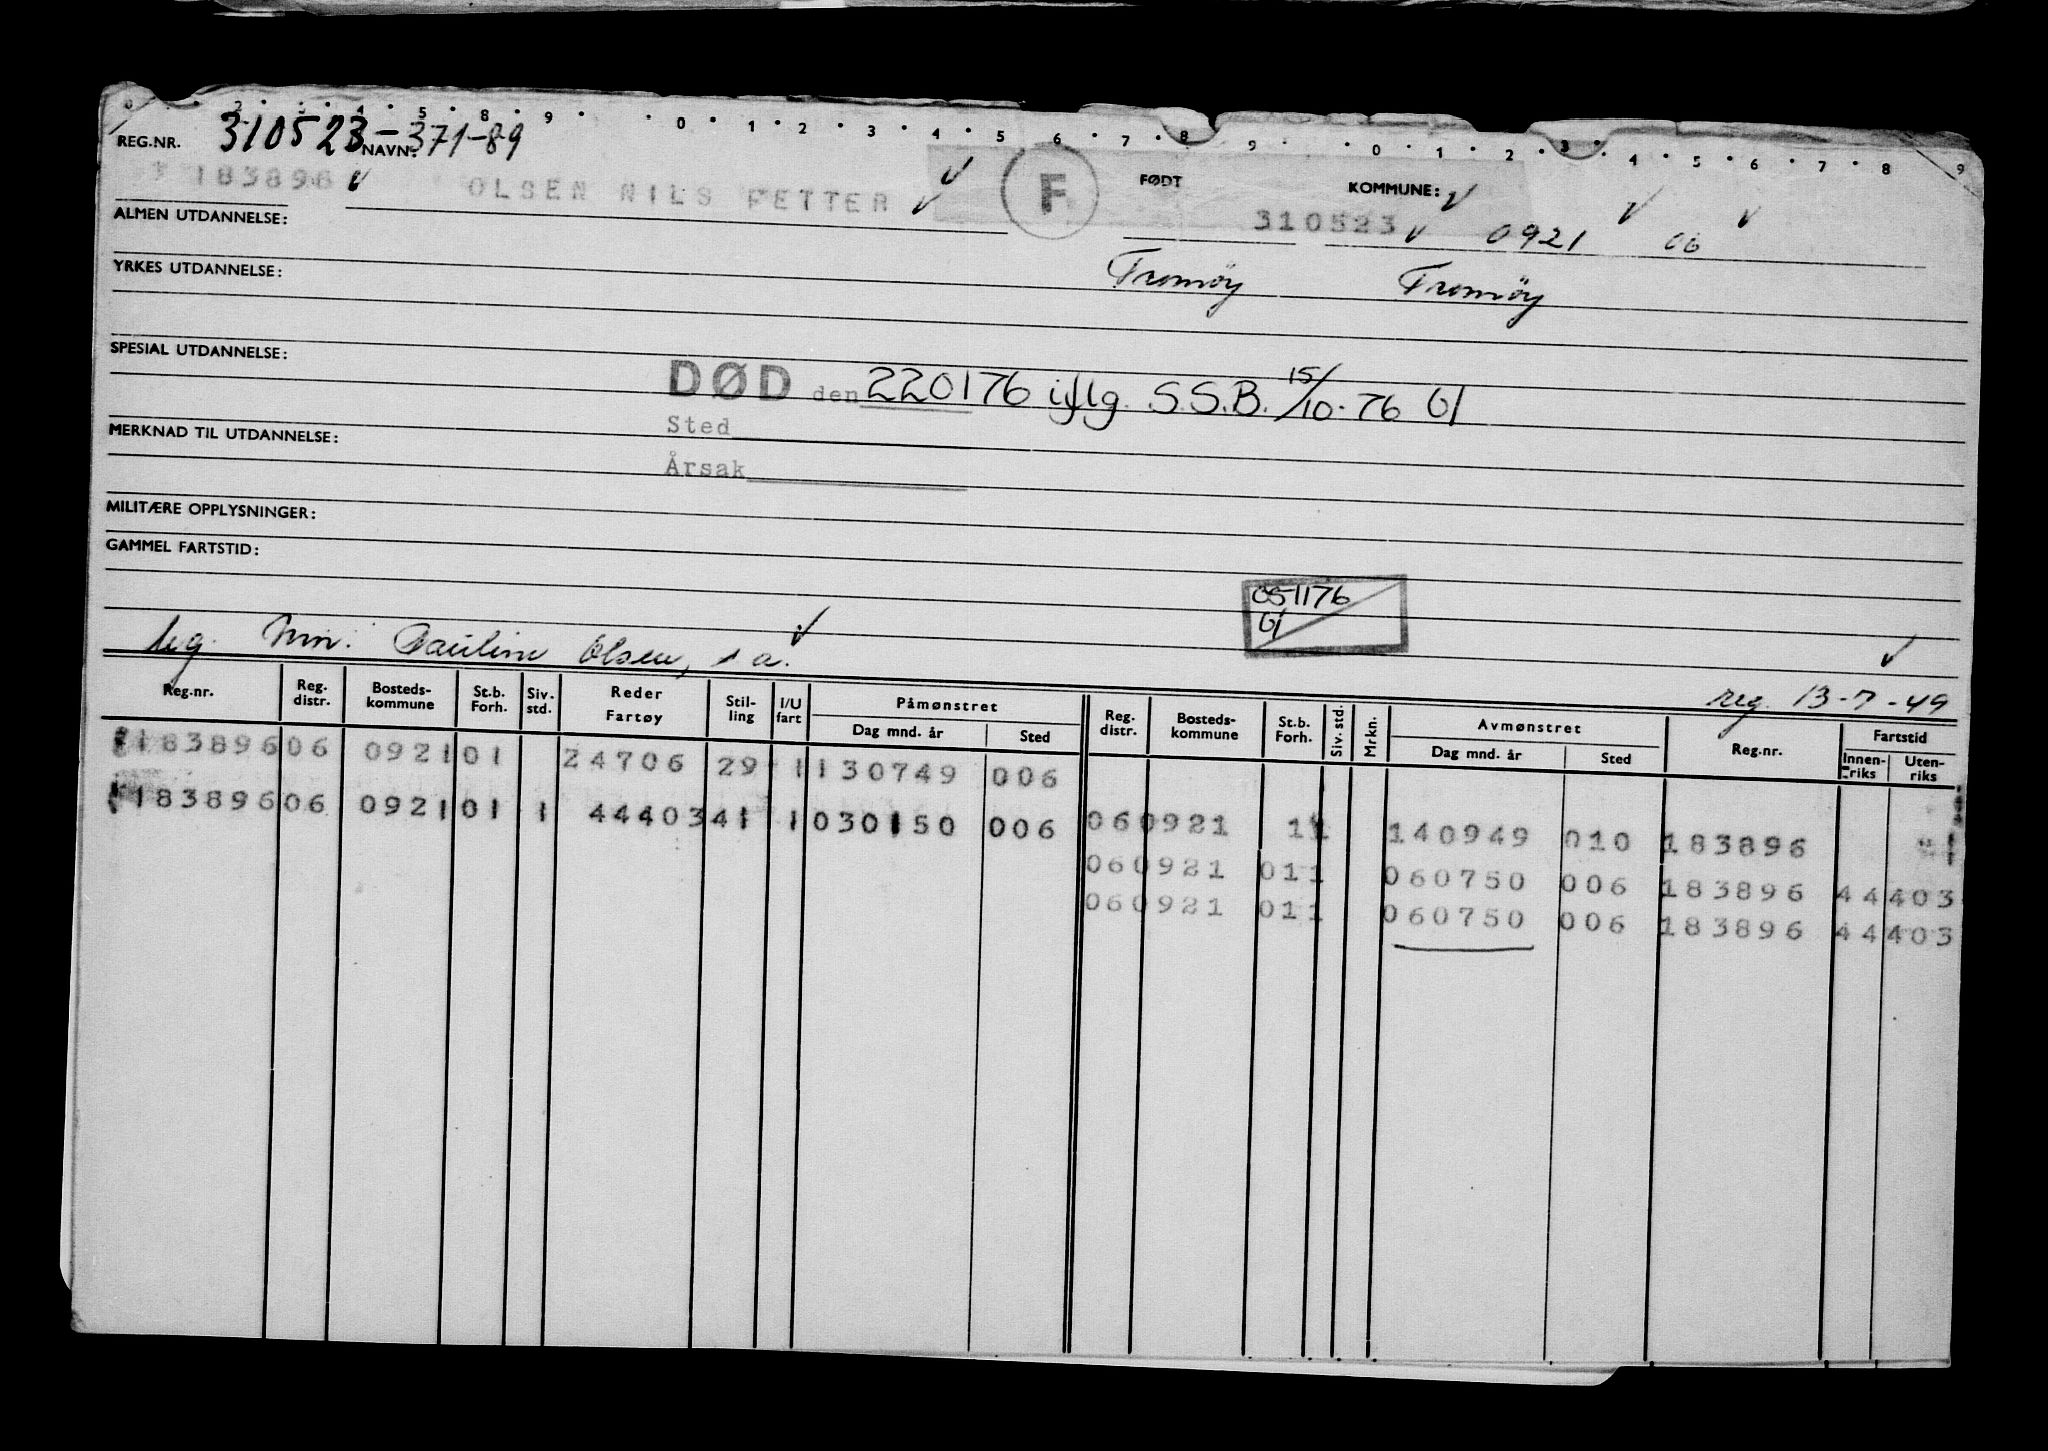 0 2 3 4 5 8 9 0 1 2 3 4 5 6 7 8 9 0 1 2 3 4 5 6 7 8 9
REG.NR. 310523-371-89 NAVN:
183896 OLSEN NILS PETTER F FØDT 310523 KOMMUNE: 0921 06
ALMEN UTDANNELSE:
YRKES UTDANNELSE: Tromöy Tromöy
SPESIAL UTDANNELSE:
DØD den 220176 iflg. S.S.B. 15/10-76 Gl
Sted
MERKNAD TIL UTDANNELSE:
Årsak
MILITÆRE OPPLYSNINGER:
GAMMEL FARTSTID:
051176
Gl
Mor: Pauline Olsen, s a.
reg. 13-7-49
Reg.nr. Reg. distr. Bosteds- kommune St.b. Forh. Siv. std. Reder Fartøy Stil- ling I/U fart Påmønstret Dag mnd. år Sted Reg. distr. Bosteds- kommune St.b. Forh. Siv. std. Mrkn. Avmønstret Dag mnd. år Sted Reg.nr. Fartstid Innen- riks Uten- riks
183896 06 0921 01 24706 29 1 130749 006
183896 06 0921 01 1 44403 41 1 030150 006
06 0921 11 140949 010 183896
06 0921 01 1 060750 006 183896 44403
06 0921 01 1 060750 006 183896 44403